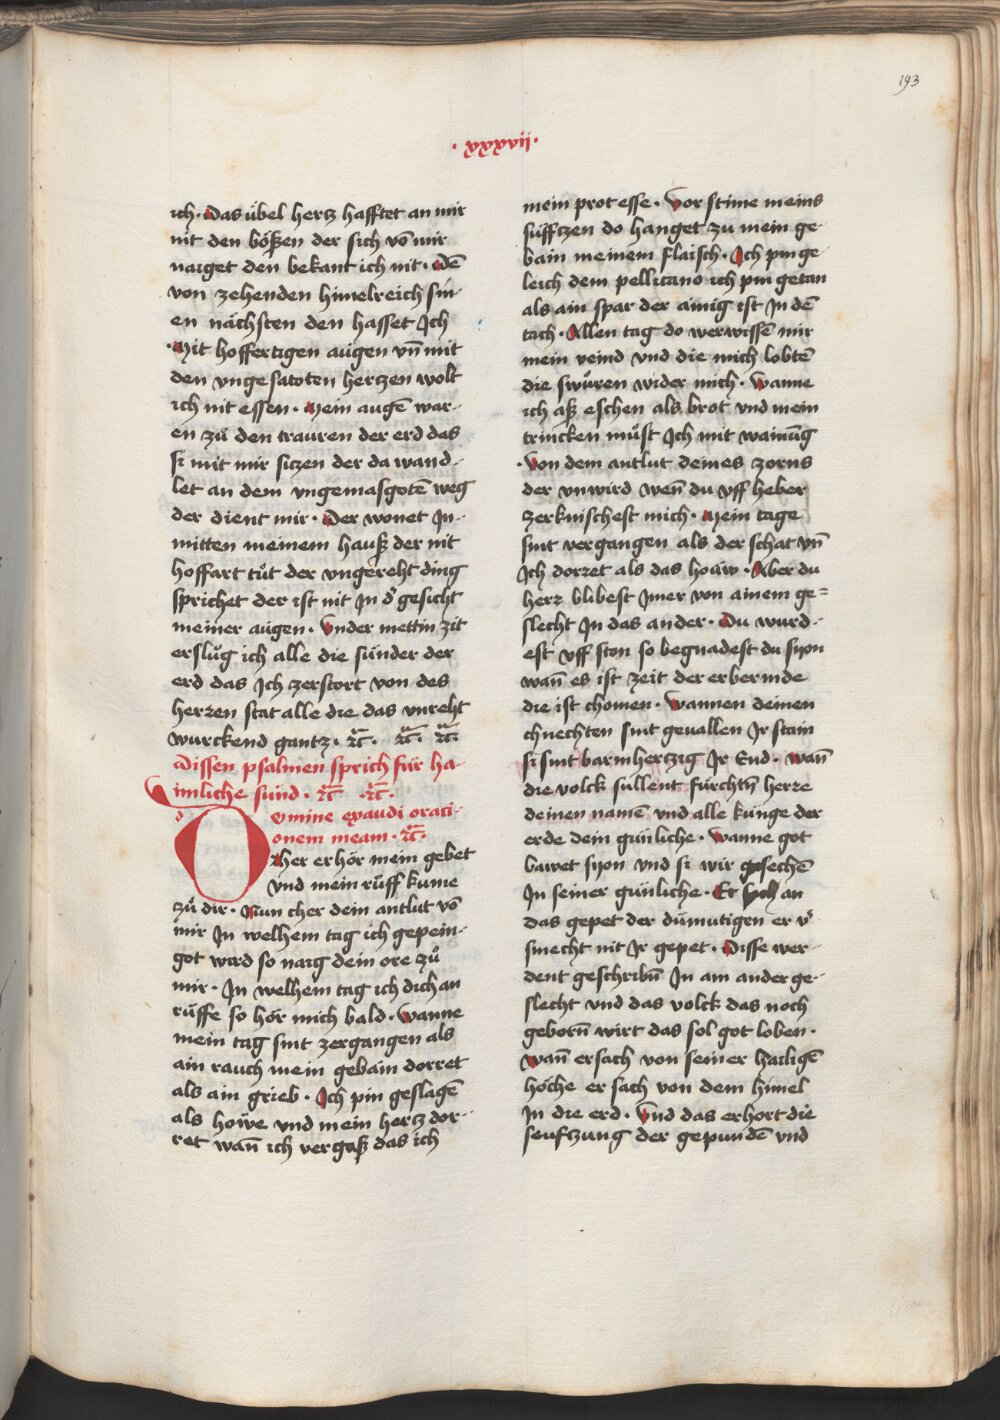 193
· xxxvii ·
ich · Das übel hertz hafftet an mir
nit den bößen der sich vō mir
naiget den bekant ich nit · Dē
von zehenden himelreich sin-
en nächsten den hasset Ich
· Mit hoffertigen augen vn̄ mit
den vngesatoten hertzen wolt
ich nit essen · Mein augē war-
en zů den trauren der erd das
si mit mir sitzen der da wand-
let an dem vngemasgotē weg
der dient mir · Der wonet In-
mitten meinem hauß der nit
hoffart tůt der vngereht ding
sprichet der ist nit In d' gesicht
meiner augen · Vnder mettin zit
erslůg ich alle die sünder der
erd das Ich zerstort von des
herren stat alle die das vnreht
wurckend gantz · rc̄ · rc̄ rc̄
Dissen psalmen sprich für ha-
imliche sünd · rc̄ · rc̄ ·
Domine exaudi oraci-
onem meam · rc̄ ·
Aher erhör mein gebet
vnd mein růff kume
zů dir · Nun cher dein antlut vō
mir In welhem tag ich gepein-
got wird so naig dein ore zů
mir · In welhem tag ich dich an
růffe so hör mich bald · Wanne
mein tag sint zergangen als
ain rauch mein gebain dorret
als ain grieb · Ich pin geslagē
als höwe vnd mein hertz dor-
ret wan̄ ich vergaß das ich
mein prot esse · Vor stime meins
süfftzen do hanget zu mein ge-
bain meinem flaisch · Ich pin ge-
leich dem pellicano ich pin getan
als ain spar der ainig ist In dē
tach · Allen tag do verwissē mir
mein veind vnd die mich lobtē
die swůren wider mich · Wanne
ich aß eschen als brot vnd mein
trincken můst Ich mit wainūg
· Von dem antlut deines zorns
der vnwird wen̄ du vff heber
zerknischest mich · Mein tage
sint vergangen als der schat vn̄
Ich dorret als das hoäw · Aber du
herr blibest Imer von ainem ge=
slecht In das ander · Du wurd-
est vff ston so begnadest du syon
wan̄ es ist zeit der erbermde
die ist chomen · Wannen deinen
chnechten sint geuallen Ir stain
si sint barmhertzig Ir End · Wan̄
die volck sullent fürchtn̄ herre
deinen namē vnd alle künge der
erde dein günliche · Wanne got
bawet syon vnd si wir gesechē
In seiner günliche · Er sach an
das gepet der dümutigen er v'
smecht nit Ir gepet · Disse wer-
dent geschribn̄ In am ander ge-
slecht vnd das volck das noch
geborn̄ wirt das sol got loben ·
Wan̄ er sach von seiner hailigē
höche er sach von dem himel
In die erd · Vnd das erhort die
seuftzung der gepundē vnd